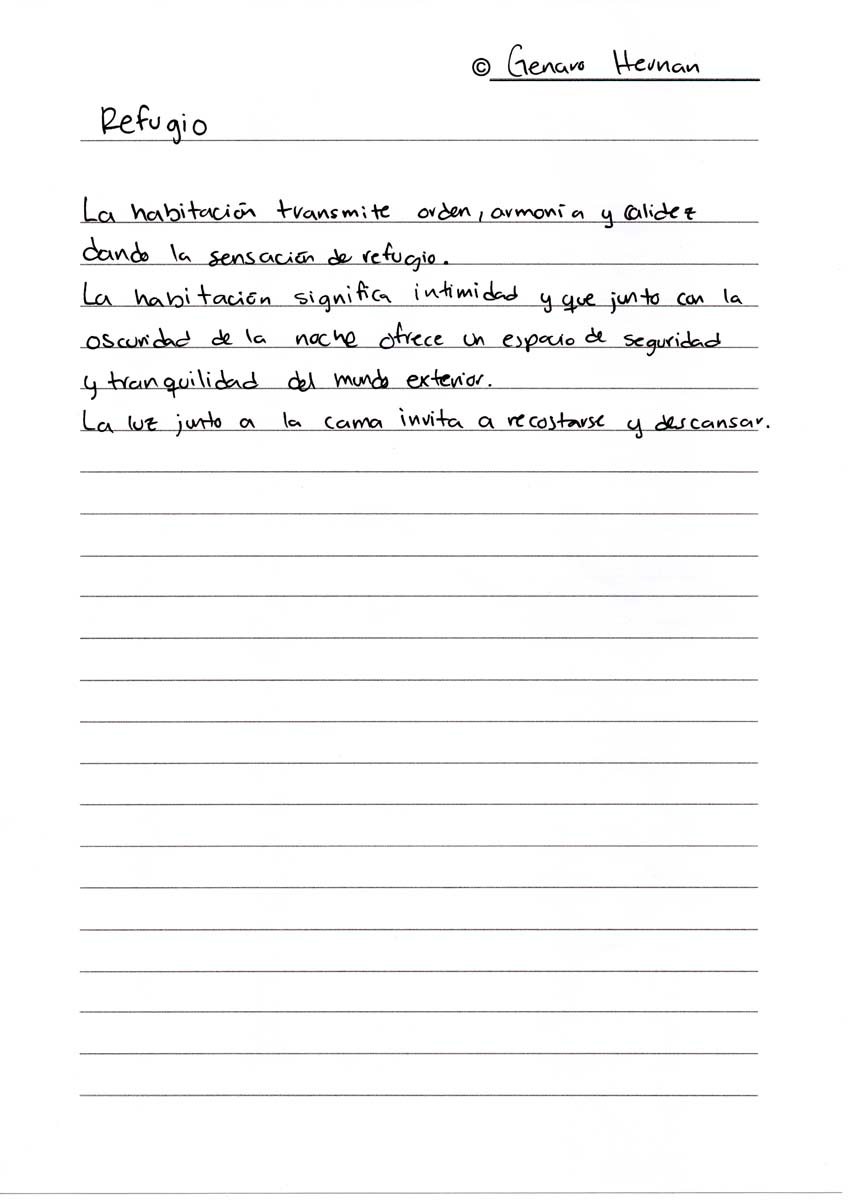 © Genaro Hernan
Refugio
La habitación transmite orden, armonía y calidez
dando la sensación de refugio.
La habitación significa intimidad y que junto con la
oscuridad de la noche ofrece un espacio de seguridad
y tranquilidad del mundo exterior.
La luz junto a la cama invita a recostarse y descansar.